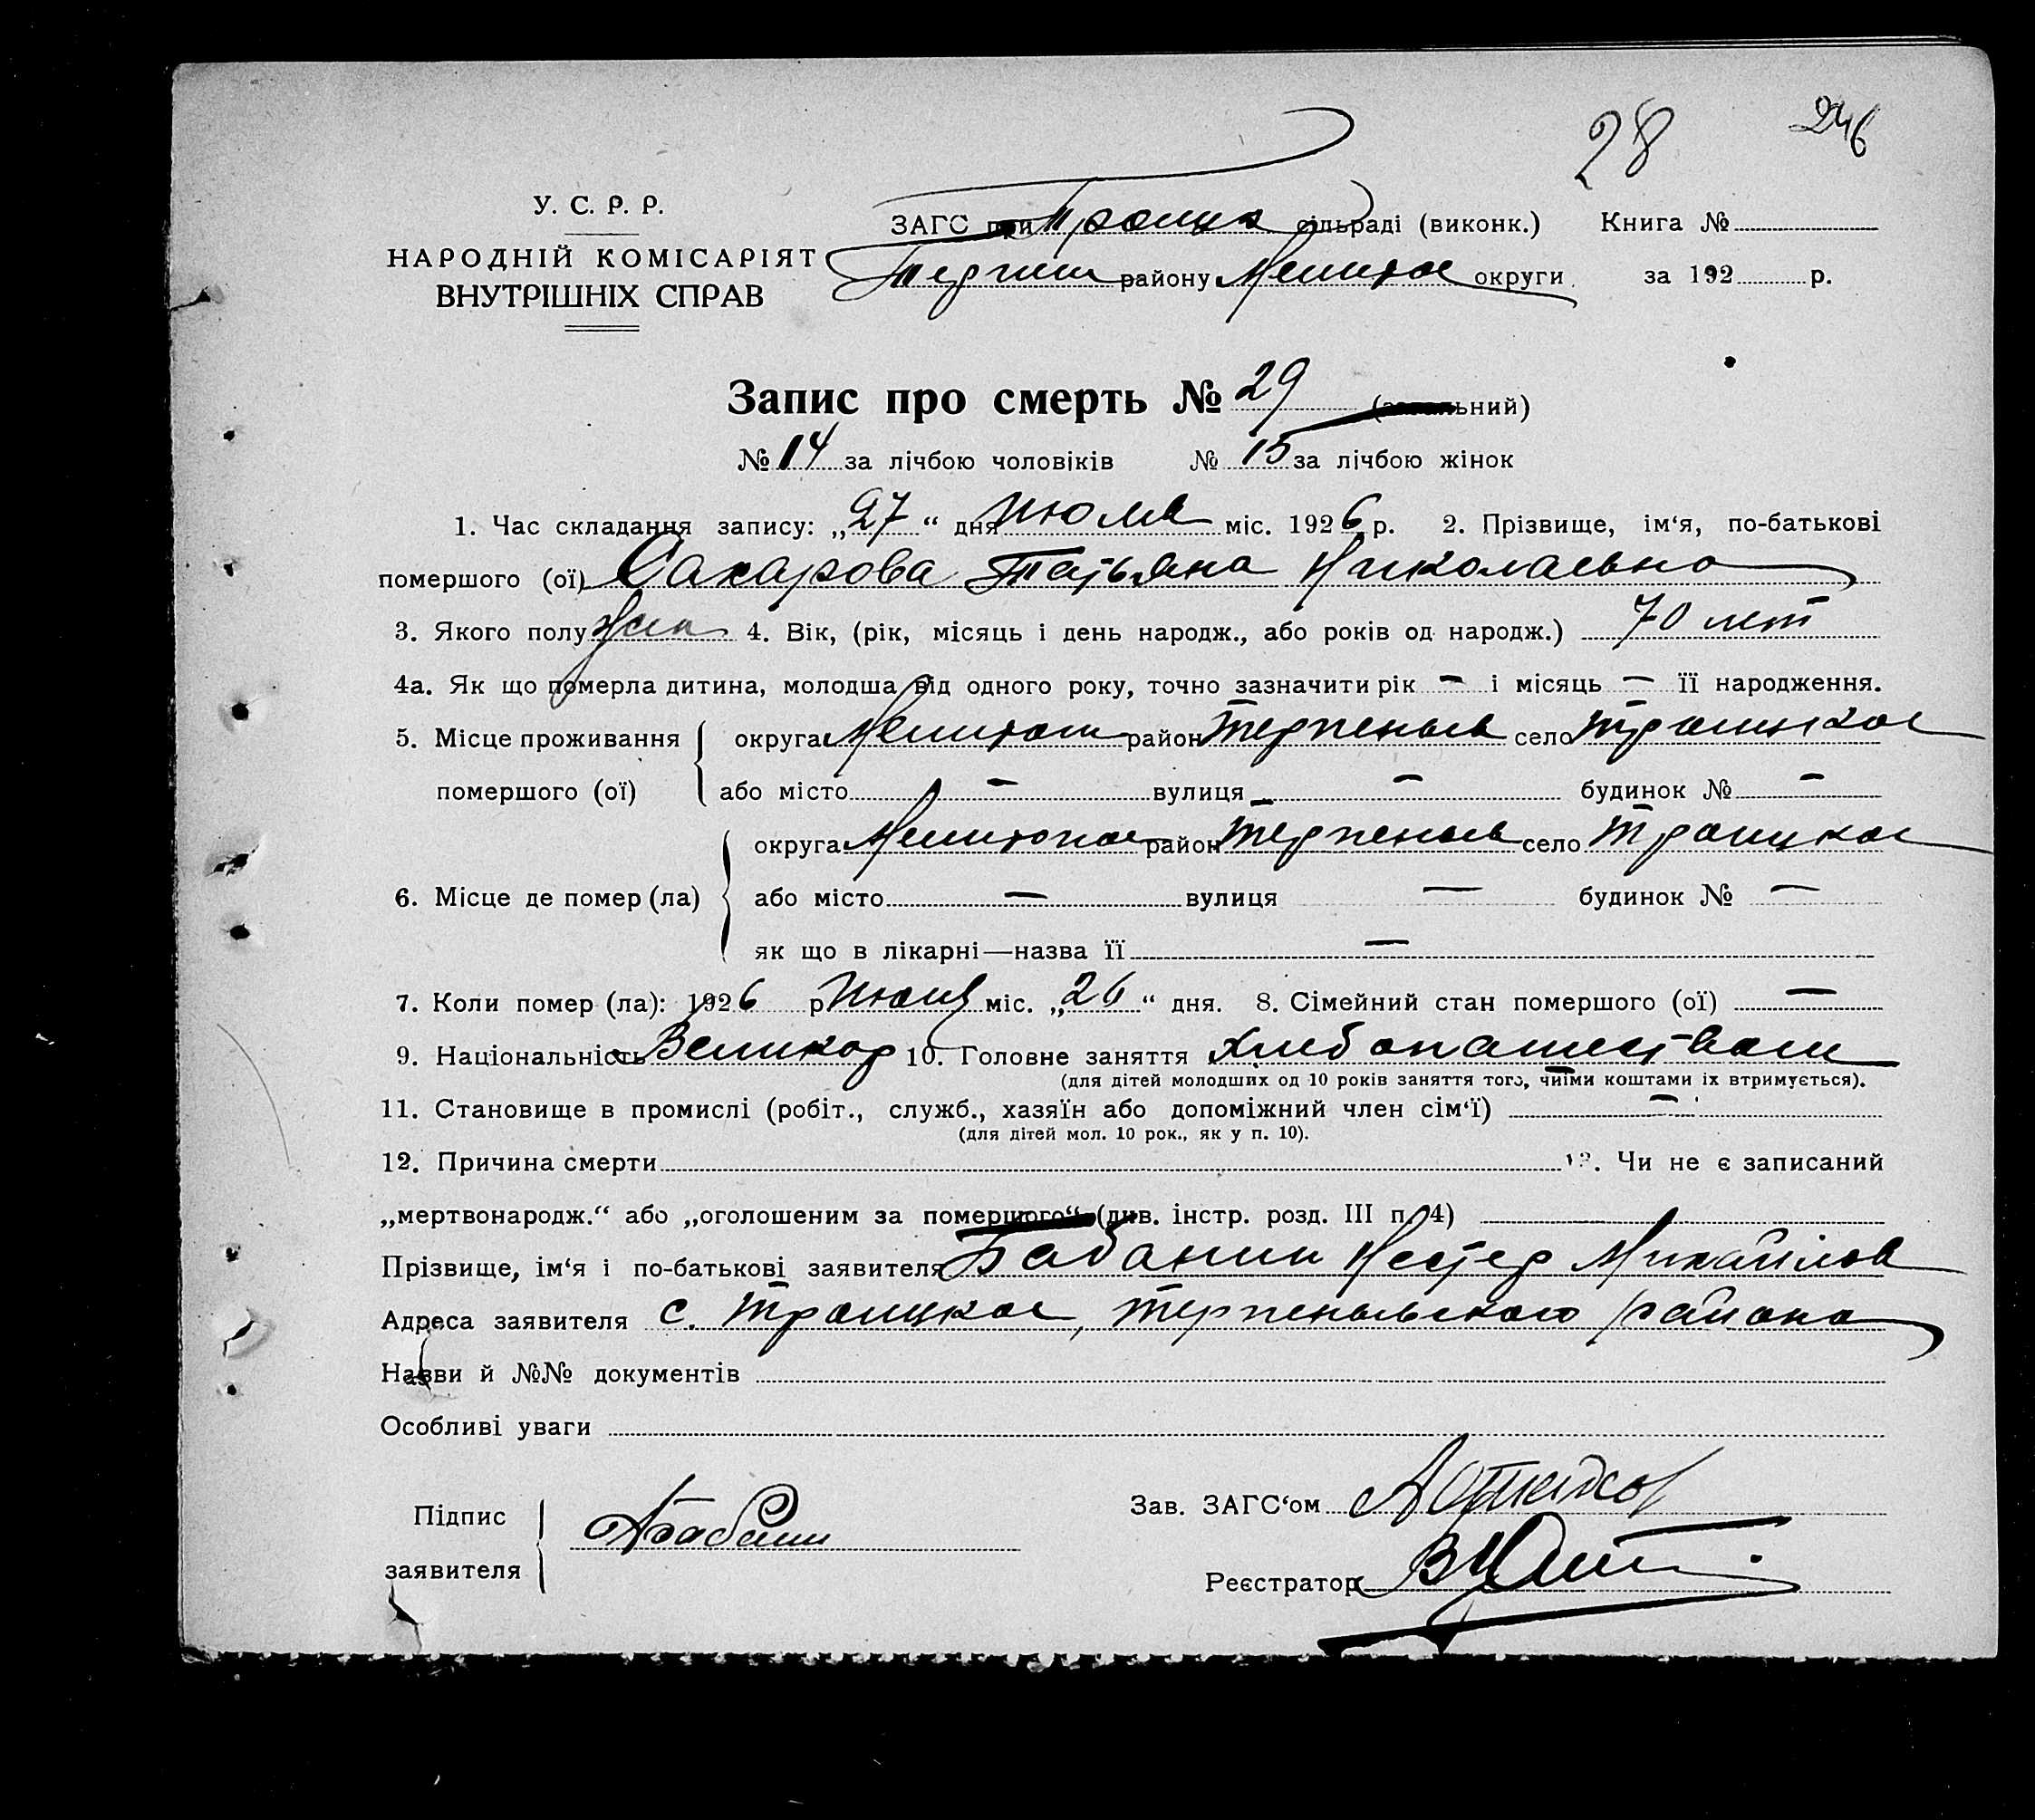 28 246
У. С. Р. Р.
НАРОДНІЙ КОМІСАРІЯТ
ВНУТРІШНІХ СПРАВ
ЗАГС при Троицк сільраді (виконк.) Книга №
Терпен району Мелитоп округи за 192 р.
Запис про смерть № 29 (загальний)
№ 14 за лічбою чоловіків № 15 за лічбою жінок
1. Час складання запису: „27“ дня Июля міс. 1926 р. 2. Прізвище, ім‘я, по-батькові
помершого (ої) Сахарова Татьяна Николаевна
3. Якого полу жен 4. Вік, (рік, місяць і день народж., або років од народж.) 70 лет
4а. Як що померла дитина, молодша від одного року, точно зазначити рік — і місяць — її народження.
5. Місце проживання
помершого (ої)
округа Мелитоп район Терпеньев село Троицкое
або місто — вулиця — будинок № —
6. Місце де помер (ла)
округа Мелитопол район Терпеньев село Троицкое
або місто — вулиця — будинок № —
як що в лікарні—назва її —
7. Коли помер (ла): 1926 р. Июля міс. „26“ дня. 8. Сімейний стан помершого (ої) —
9. Національність Великор 10. Головне заняття Хлебопашеством
(для дітей молодших од 10 років заняття того, чиїми коштами їх втримується).
11. Становище в промислі (робіт., служб., хазяїн або допоміжний член сім‘ї) —
(для дітей мол. 10 рок., як у п. 10).
12. Причина смерти 13. Чи не є записаний
„мертвонародж.“ або „оголошеним за помершого“ (див. інстр. розд. III п. 4)
Прізвище, ім‘я і по-батькові заявителя Бабанин Нестер Михайлов
Адреса заявителя с. Троицкое, Терпеньевского района
Назви й №№ документів
Особливі уваги
Підпис
заявителя
Зав. ЗАГС‘ом
Реєстратор